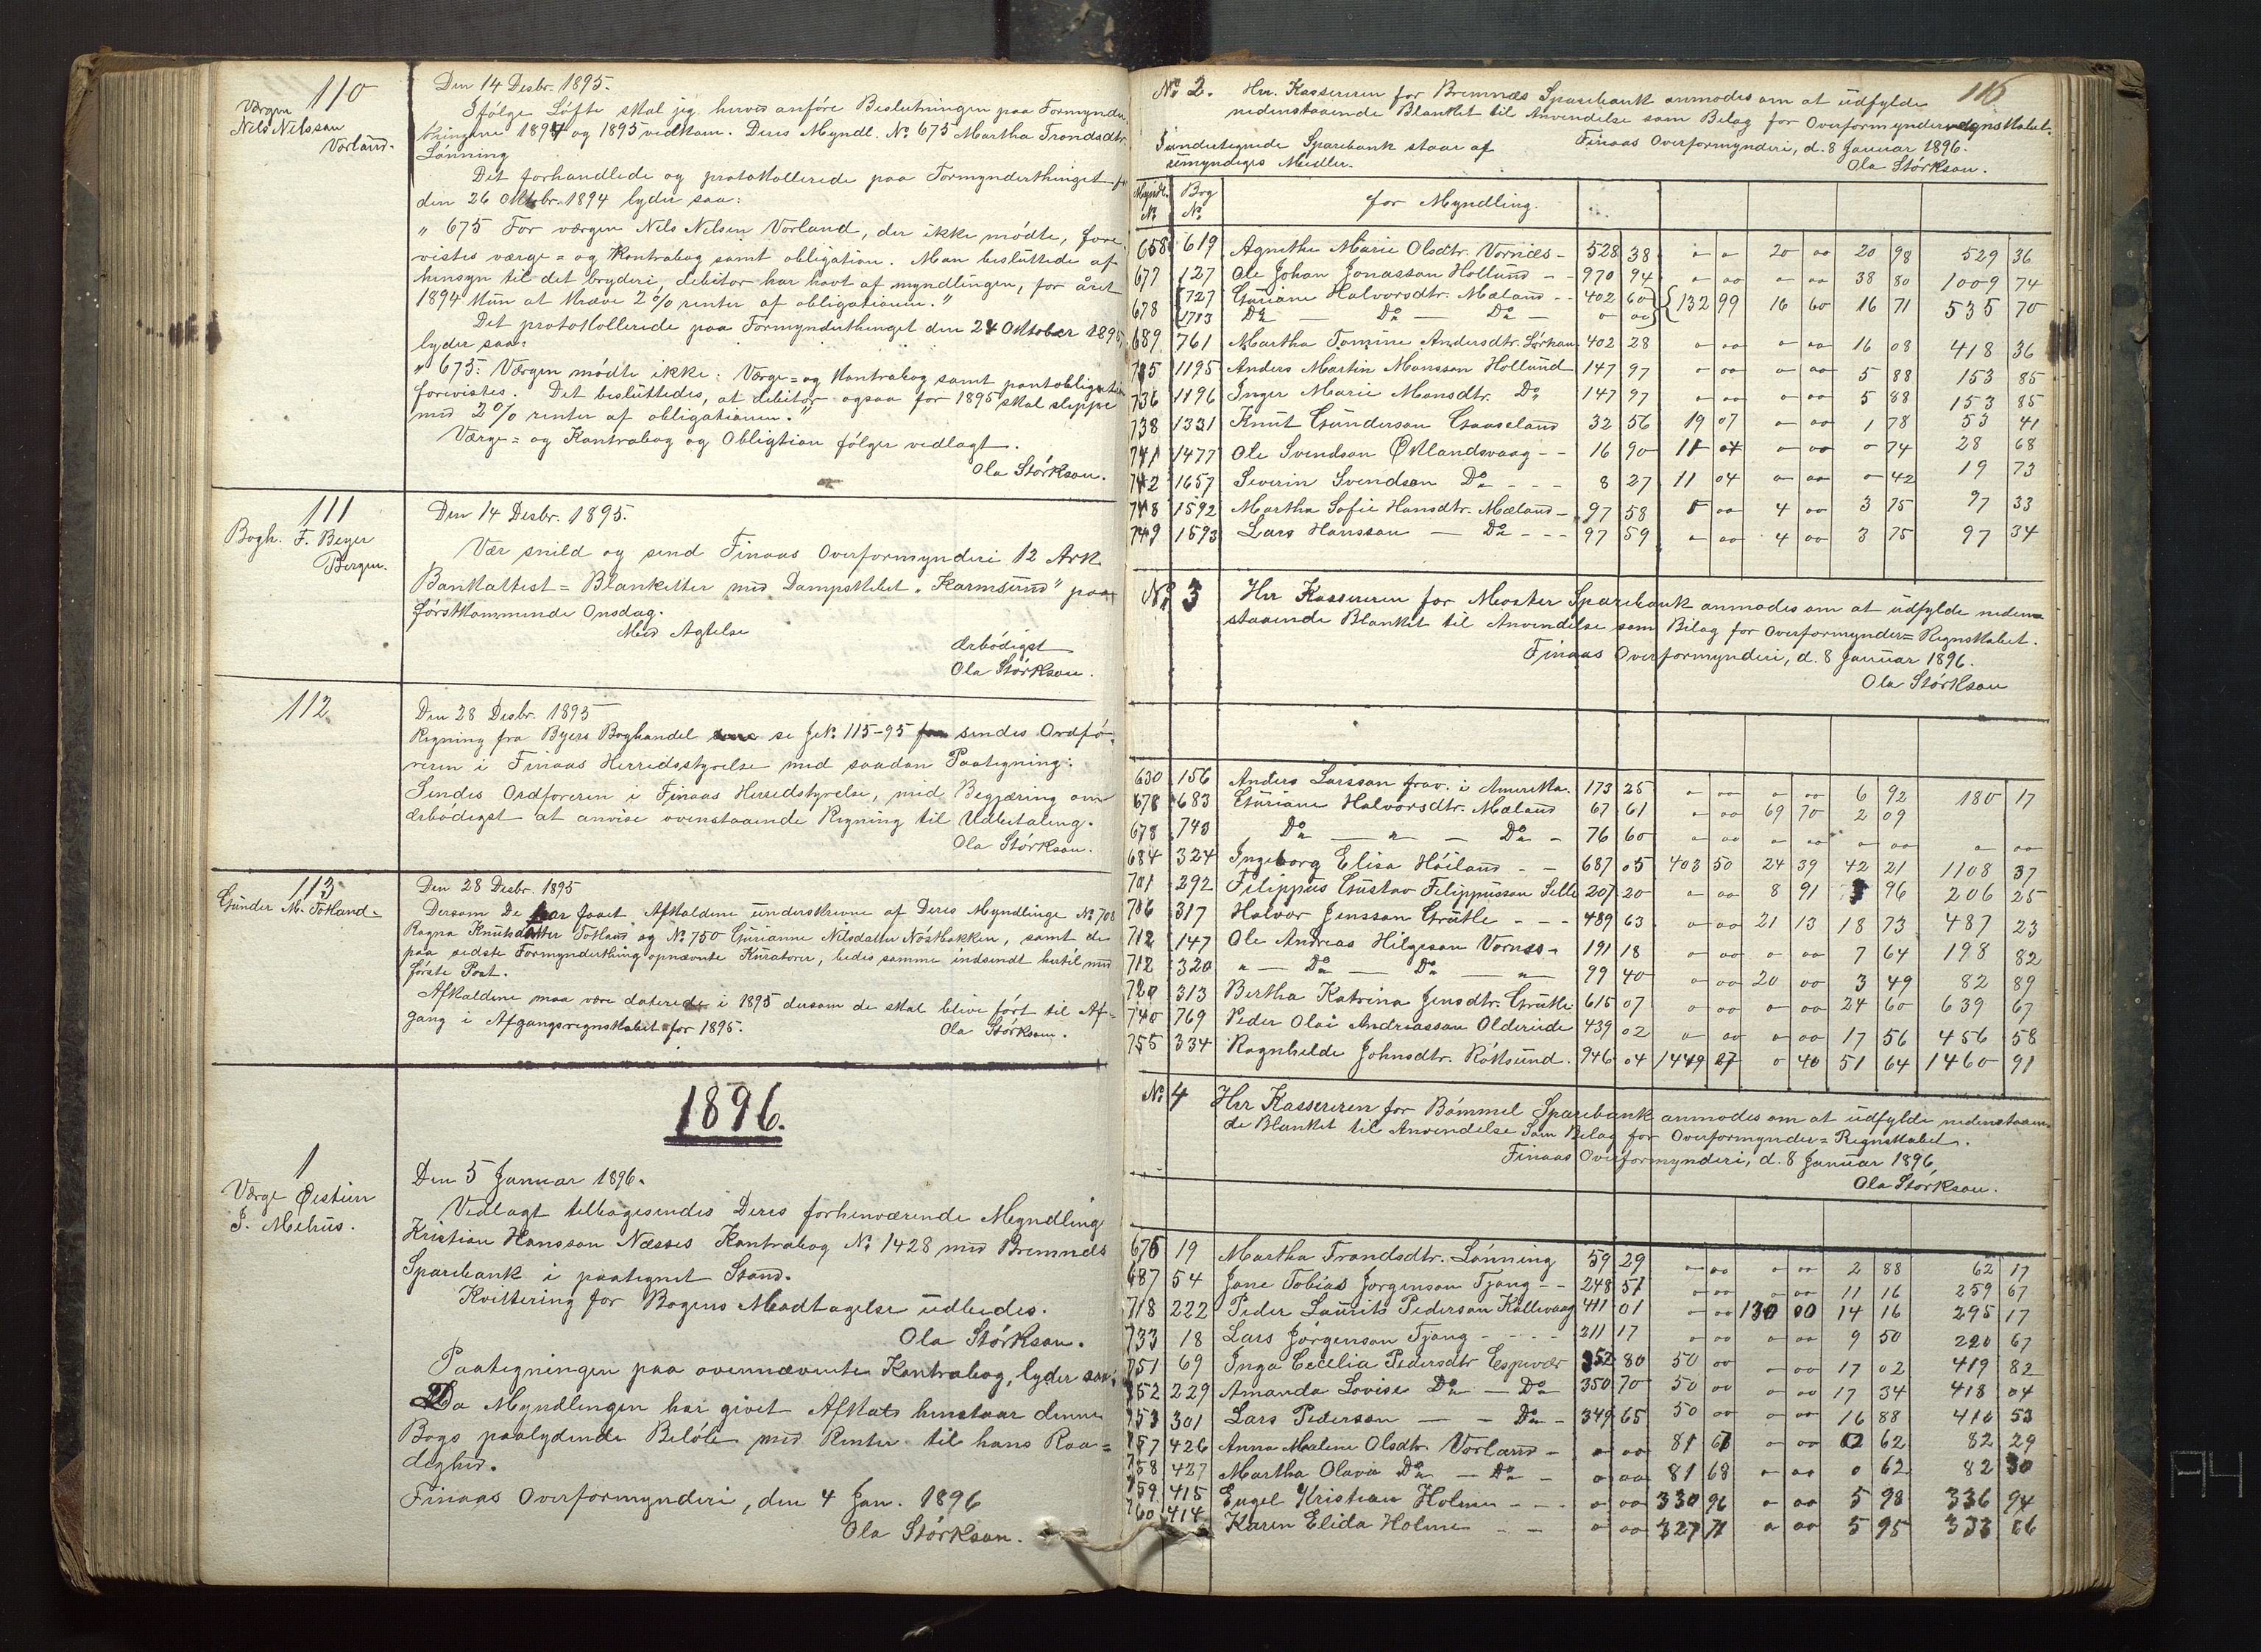 110
Værgen
Nils Nilsson
Vorland.
Den 14 Desbr. 1895.
Ifölge Löfte skal jeg herved anföre Beslutningen paa Formynder
thingene 1894 og 1895 vedkom. Deres Myndl. No 675 Martha Trondsdtr.
Lönning
Det forhandlede og protokollerede paa Formynderthinget
den 26 Oktobr. 1894 lyder saa:
" 675 For værgen Nils Nelsen Vorland, der ikke mödte, fore-
vistes værge= og Kontrabog samt obligation. Man besluttede af
hensyn til det bryderi, debitor har havt af myndlingen, for året
1894 kun at kræve 2% renter af obligationen."
Det protokollerede paa Formynderthinget den 24 Oktober 1895,
lyder saa:
" 675: Værgen mödte ikke. Værge= og Kontrabog samt pantobligation
forevistes. Det besluttedes, at debitor ogsaa for 1895 skal slippe
med 2% renter af obligationen."
Værge= og Kontrabog og Obligtion fölger vedlagt.
Ola Störkson.
111
Bogh. F. Beyer
Bergen.
Den 14 Desbr. 1895.
Vær snild og send Finaas Overformynderi 12 Ark
Bankattest= Blanketter med Dampskibet "Karmsund" paa
förstkommende Onsdag.
Med Agtelse
Ærbödigst
Ola Störkson.
112
Den 28 Desbr. 1895
Regning fra Byers Boghandel se JNo. 115-95 sendes Ordfö-
reren i Finaas Herredsstyrelse med saadan Paategning:
Sendes Ordföreren i Finaas Herredstyrelse, med Begjæring om
ærbödigst at anvise ovenstaaende Regning til Udbetaling.
Ola Störkson.
113
Gunder M. Totland-
Den 28 Desbr. 1895
Dersom De har faaet Afkaldene underskrevne af Deres Myndlinge No 708
Ragna Knutsdatter Totland og No 750 Gurianne Nilsdatter Nöstbakken, samt de
paa sidste Formynderthing opnævnte Kuratorer, bedes samme indsendt hertil med
förste Post.
Afkaldene maa være daterede i 1895 dersom de skal blive fört til Af=
gang i Afgangsregnskabet for 1895.
Ola Störkson.
1896.
1
Værge Øistein
J. Mehus.
Den 5 Januar 1896.
Vedlagt tilbagesendes Deres forhenværende Myndling
Kristian Hansson Næsses Kontrabog No 1428 med Bremnes
Sparebank i paategnet Stand.
Kvittering for Bogens Modtagelse udbedes.
Ola Störkson.
Paategningen paa ovennævnte Kontrabog, lyder saa:
Da Myndlingen har givet Afkald henstaar denne
Bogs paalydende Belöb med Renter til hans Raa=
dighed.
Finaas Overformynderi, den 4 Jan. 1896
Ola Störkson.
116
No 2. Hr. Kassereren for Bremnæs Sparebank anmodes om at udfylde
nedenstaaende Blanket til Anvendelse som Bilag for Overformynderregnskabet.
Finaas Overformynderi, d. 8 Januar 1896.
Ola Störkson.
I undertegnede Sparebank staar af
umyndiges Midler.
Myndl. No Bog No for Myndling.
658 619 Agnethe Marie Olsdtr. Vornæs - 528 38 " " 20 00 20 98 529 36
677 127 Ole Johan Jonasson Hollund - - 970 94 " 00 " 00 38 80 1009 74
678 727 Guriane Halvorsdtr. Mæland - - 402 60 132 99 16 60 16 71 535 70
1713 Do - Do - Do - 0 00
689 761 Martha Tomine Andersdtr. Sörhaug 402 28 " 00 " 00 16 08 418 36
735 1195 Anders Martin Mansson Hollund 147 97 " 00 " 00 5 88 153 85
736 1196 Inger Marie Monsdtr. Do 147 97 " 00 " 00 5 88 153 85
738 1331 Knut Gunderson Gaaseland 32 56 19 07 " 00 1 78 53 41
741 1477 Ole Svendson Øklandsvaag - - 16 90 11 04 " 00 0 74 28 68
742 1657 Severin Svendson Do - - - 8 27 11 04 " 00 0 42 19 73
748 1592 Martha Sofie Hansdtr. Mæland - 97 58 " 00 4 00 3 75 97 33
749 1593 Lars Hansson - Do - - - 97 59 " 00 4 00 3 75 97 34
No 3 Hr Kassereren for Moster Sparebank anmodes om at udfylde neden=
staaende Blanket til Anvendelse som Bilag for Overformynder= Regnskabet.
Finaas Overformynderi, d. 8 Januar 1896.
Ola Störkson
630 156 Anders Larsson frav. i Amerika. 173 25 " 00 " 00 6 92 180 17
678 683 Guriane Halvorsdtr. Mæland 67 61 " 00 69 70 2 09
678 740 Do - " - Do - 76 60 " 00 " 00 " 00 " 00
684 324 Ingeborg Elisa Höiland - - 687 05 403 50 24 39 42 21 1108 37
701 292 Filippus Gustav Filippusson Selle 207 20 " 00 8 91 7 96 206 25
706 317 Halvor Jensson Grutle - - - 489 63 " 00 21 13 18 73 487 23
712 147 Ole Andreas Hilgeson Vornes - 191 18 " 00 " 00 7 64 198 82
712 320 " - Do - Do - " 99 40 " 00 20 00 3 49 82 89
720 313 Bertha Katrina Jensdtr. Grutle 615 07 " 00 " 00 24 60 639 67
740 769 Peder Olai Andreasson Oldereide 439 02 " 00 " 00 17 56 456 58
755 334 Ragnhilde Johnsdtr. Röksund. 946 04 1449 27 0 40 51 64 1460 91
No 4 Hr Kassereren for Bömmel Sparebank anmodes om at udfylde nedenstaaen=
de Blanket til Anvendelse som Bilag for Overformynder= Regnskabet.
Finaas Overformynderi, d. 8 Januar 1896,
Ola Störkson.
675 19 Martha Trondsdtr. Lönning 59 29 " 00 " 00 2 88 62 17
687 54 Jane Tobias Jorgenson Tjong - - 248 51 " 00 " 00 11 16 259 67
718 222 Peder Laurits Pederson Kallevaag 411 01 " 00 130 00 14 16 295 17
733 18 Lars Jörgenson Tjong - - - - 211 17 " 00 " 00 9 50 220 67
751 69 Inga Cecelia Pedersdtr Espevær 352 80 50 00 " 00 17 02 419 82
752 229 Amanda Lovise Do - Do 350 70 50 00 " 00 17 34 418 04
753 301 Lars Pederson - - Do - 349 65 50 00 " 00 16 88 416 53
757 426 Anna Malene Olsdtr. Vorland - 0 00 81 67 " 00 0 62 82 29
758 427 Martha Olava Do - Do - 0 00 81 68 " 00 0 62 82 30
759 415 Engel Kristian Holme - - - 0 00 330 96 " 00 5 98 336 94
760 414 Karen Elida Holme - - 0 00 327 71 " 00 5 95 333 66